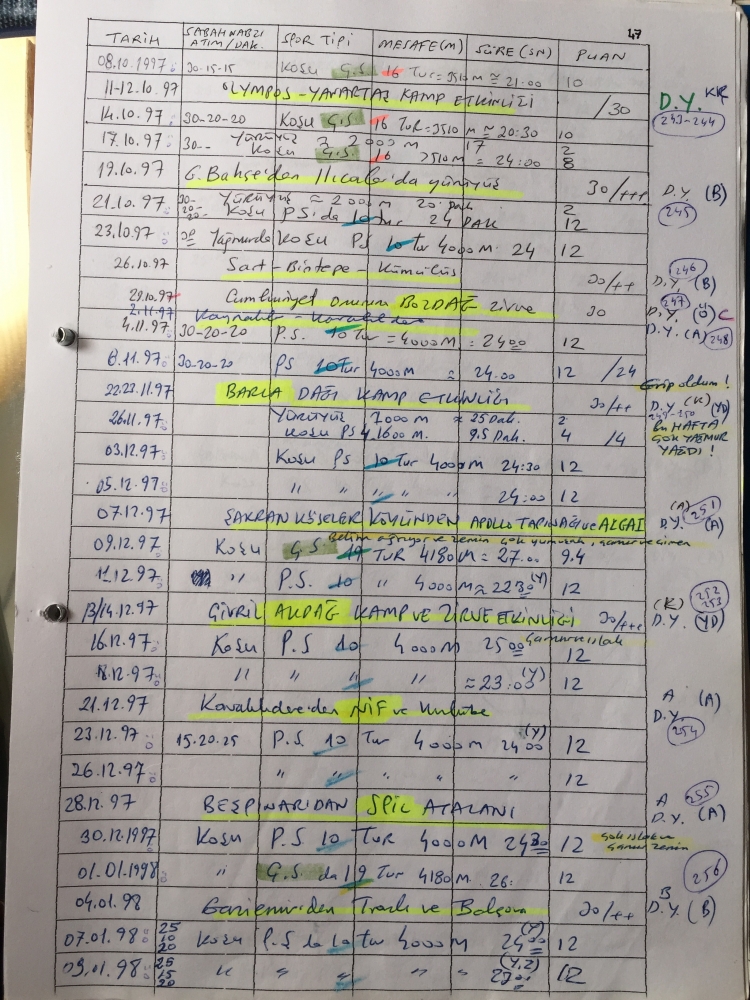 47
TARİH SABAH NABZI ATIM/DAK. SPOR TİPİ MESAFE(M) SÜRE (SN) PUAN
08.10.1997 30-15-15 KOŞU G.S. 16 TUR=3510 M ≈ 21:00 10
11-12.10.97 OLYMPOS-YANARTAŞ KAMP ETKİNLİĞİ /30 D.Y. KIR
243-244
14.10.97 30-20-20 KOŞU G.S. 16 TUR=3510 M ≈ 20:30 10
17.10.97 30-- YÜRÜYÜŞ 2000 M 17 2
KOŞU G.S. 16 3510 M = 24:00 8
19.10.97 G. Bahçe'den Ilıcalar'da yürüyüş 30/+++ D.Y. (B)
245
21.10.97 30- YÜRÜYÜŞ ≈ 2000 M 20 Dak 2
20- 20- KOŞU P.S.'da 10 tur 24 DAK 12
23.10.97 Yağmurda KOŞU PS 10 Tur 4000 M. 24 12
246
26.10.97 Sart-Bintepe-Tümülüs 30/++ D.Y. (B)
247
29.10.97 Cumhuriyet onuruna BOZDAĞ zirve 30 D.Y. (Ö) C
2.11.97 D.Y. (A) 248
4.11.97 30-20-20 P.S. 10 Tur = 4000 M = 2400 12
6.11.97 30-20-20 PS 10 Tur 4000 M = 24.00 12 /24
Grip oldum!
22.23.11.97 BARLA DAĞI KAMP ETKİNLİĞİ 30/++ D.Y. (K) (YD)
249-250
26.11.97 YÜRÜYÜŞ 2000 M ≈ 25 Dak. 2
KOŞU PS 4 1600 M. 9.5 Dak. 4 /4
BU HAFTA
ÇOK YAĞMUR
YAĞDI!
03.12.97 KOŞU PS 10 Tur 4000 M 24:30 12
05.12.97 " " " " 24:00 12
07.12.97 ŞAKRAN KÖSELER KÖYÜNDEN APOLLO TAPINAĞI ve AIGAI D.Y. (A) (A) 251
Belim ağrıyor ve zemin çok yumuşak, çamur ve çimen
09.12.97 KOŞU G.S. 19 TUR 4180 M = 27.00 9.4
11.12.97 " P.S. 10 " 4000 M ≈ 2230 (Y) 12
252
253
13/14.12.97 ÇİVRİL AKDAĞ KAMP VE ZİRVE ETKİNLİĞİ 30/+++ (K) D.Y. (YD)
16.12.97 KOŞU P.S 10 4000 M 2500 Çamur ve ıslak 12
18.12.97 " " " ≈ 23:00 (Y) 12
21.12.97 Kavaklıdere'den NİF ve Kulübe A D.Y. (A)
254
23.12.97 15.20.25 P.S. 10 Tur 4000 M 2400 (Y) 12
26.12.97 " " " " " 12
28.12.97 BEŞPINAR'DAN SPİL ATALANI A D.Y. (A) 255
30.12.1997 KOŞU P.S 10 TUR 4000 M 2430 12 Çok ıslak ve çamur zemin
01.01.1998 " G.S. da 19 Tur 4180 M. 26: 12
256
04.01.98 Gaziemir'den Tırazlı ve Balçova 30/++ B D.Y. (B)
07.01.98 25 10 20 KOŞU P.S da 10 tur 4000 M 2400 (Y) 12
09.01.98 25 15 20 " " " " " 2300 (Y,Z) 12